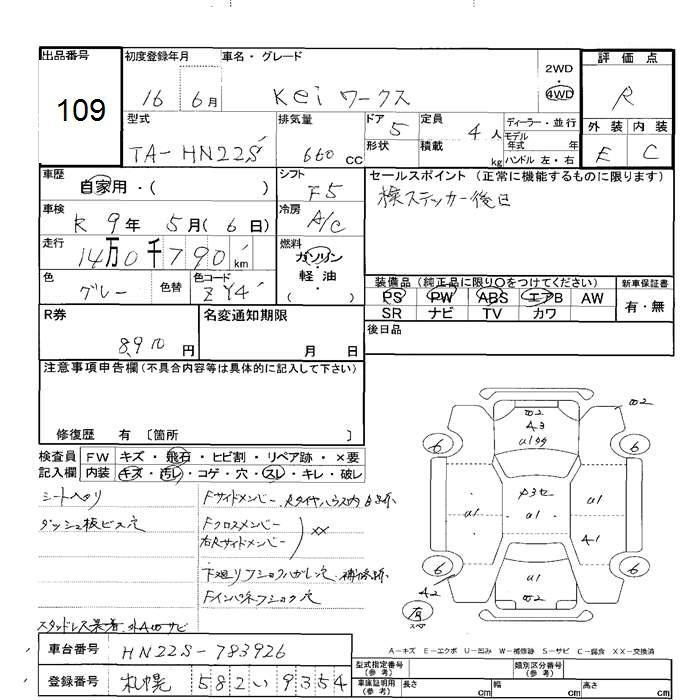 出品番号
109
初度登録年月
16 6月
車名・グレード
Kei ワークス
2WD
4WD
評価点
R
外装 内装
E C
型式
TA-HN22S
排気量
660 CC
ドア 5
形状
定員 4人
積載 kg
ディーラー・並行
モデル年式 年
ハンドル 左・右
車歴
自家用・( )
シフト
F5
セールスポイント (正常に機能するものに限ります)
様ステッカー後日
車検
R 9年 5月(6日)
冷房
A/C
走行
14万0千790km
燃料
ガソリン
・
軽油
( )
色
グレー
色替
色コード
ZY4
装備品 (純正品に限り○をつけてください)
PS PW ABS エアB AW
SR ナビ TV カワ
新車保証書
有・無
後日品
R券
8,910円
名変通知期限
月 日
注意事項申告欄(不具合内容等は具体的に記入して下さい)
修復歴 有 〔箇所 〕
検査員記入欄
FW キズ・飛石・ヒビ割・リペア跡・×要
内装 キズ・汚レ・コゲ・穴・スレ・キレ・破レ
シートヘタリ
ダッシュ板ビス穴
Fクロスメンバー
右Rサイドメンバー
XX
Fインパネフショク穴
W2
A3
W2
6
6
A1
U1
U1
U1
A1
6
6
A2
U1
W2
有
スペ
A=キズ E=エクボ U=凹み W=補修跡 S=サビ C=腐食 XX=交換済
車台番号
HN22S-783926
登録番号
札幌 582い9354
型式指定番号
(参考)
類別区分番号
(参考)
車庫証明用
(参考)
長さ cm 幅 cm 高さ cm